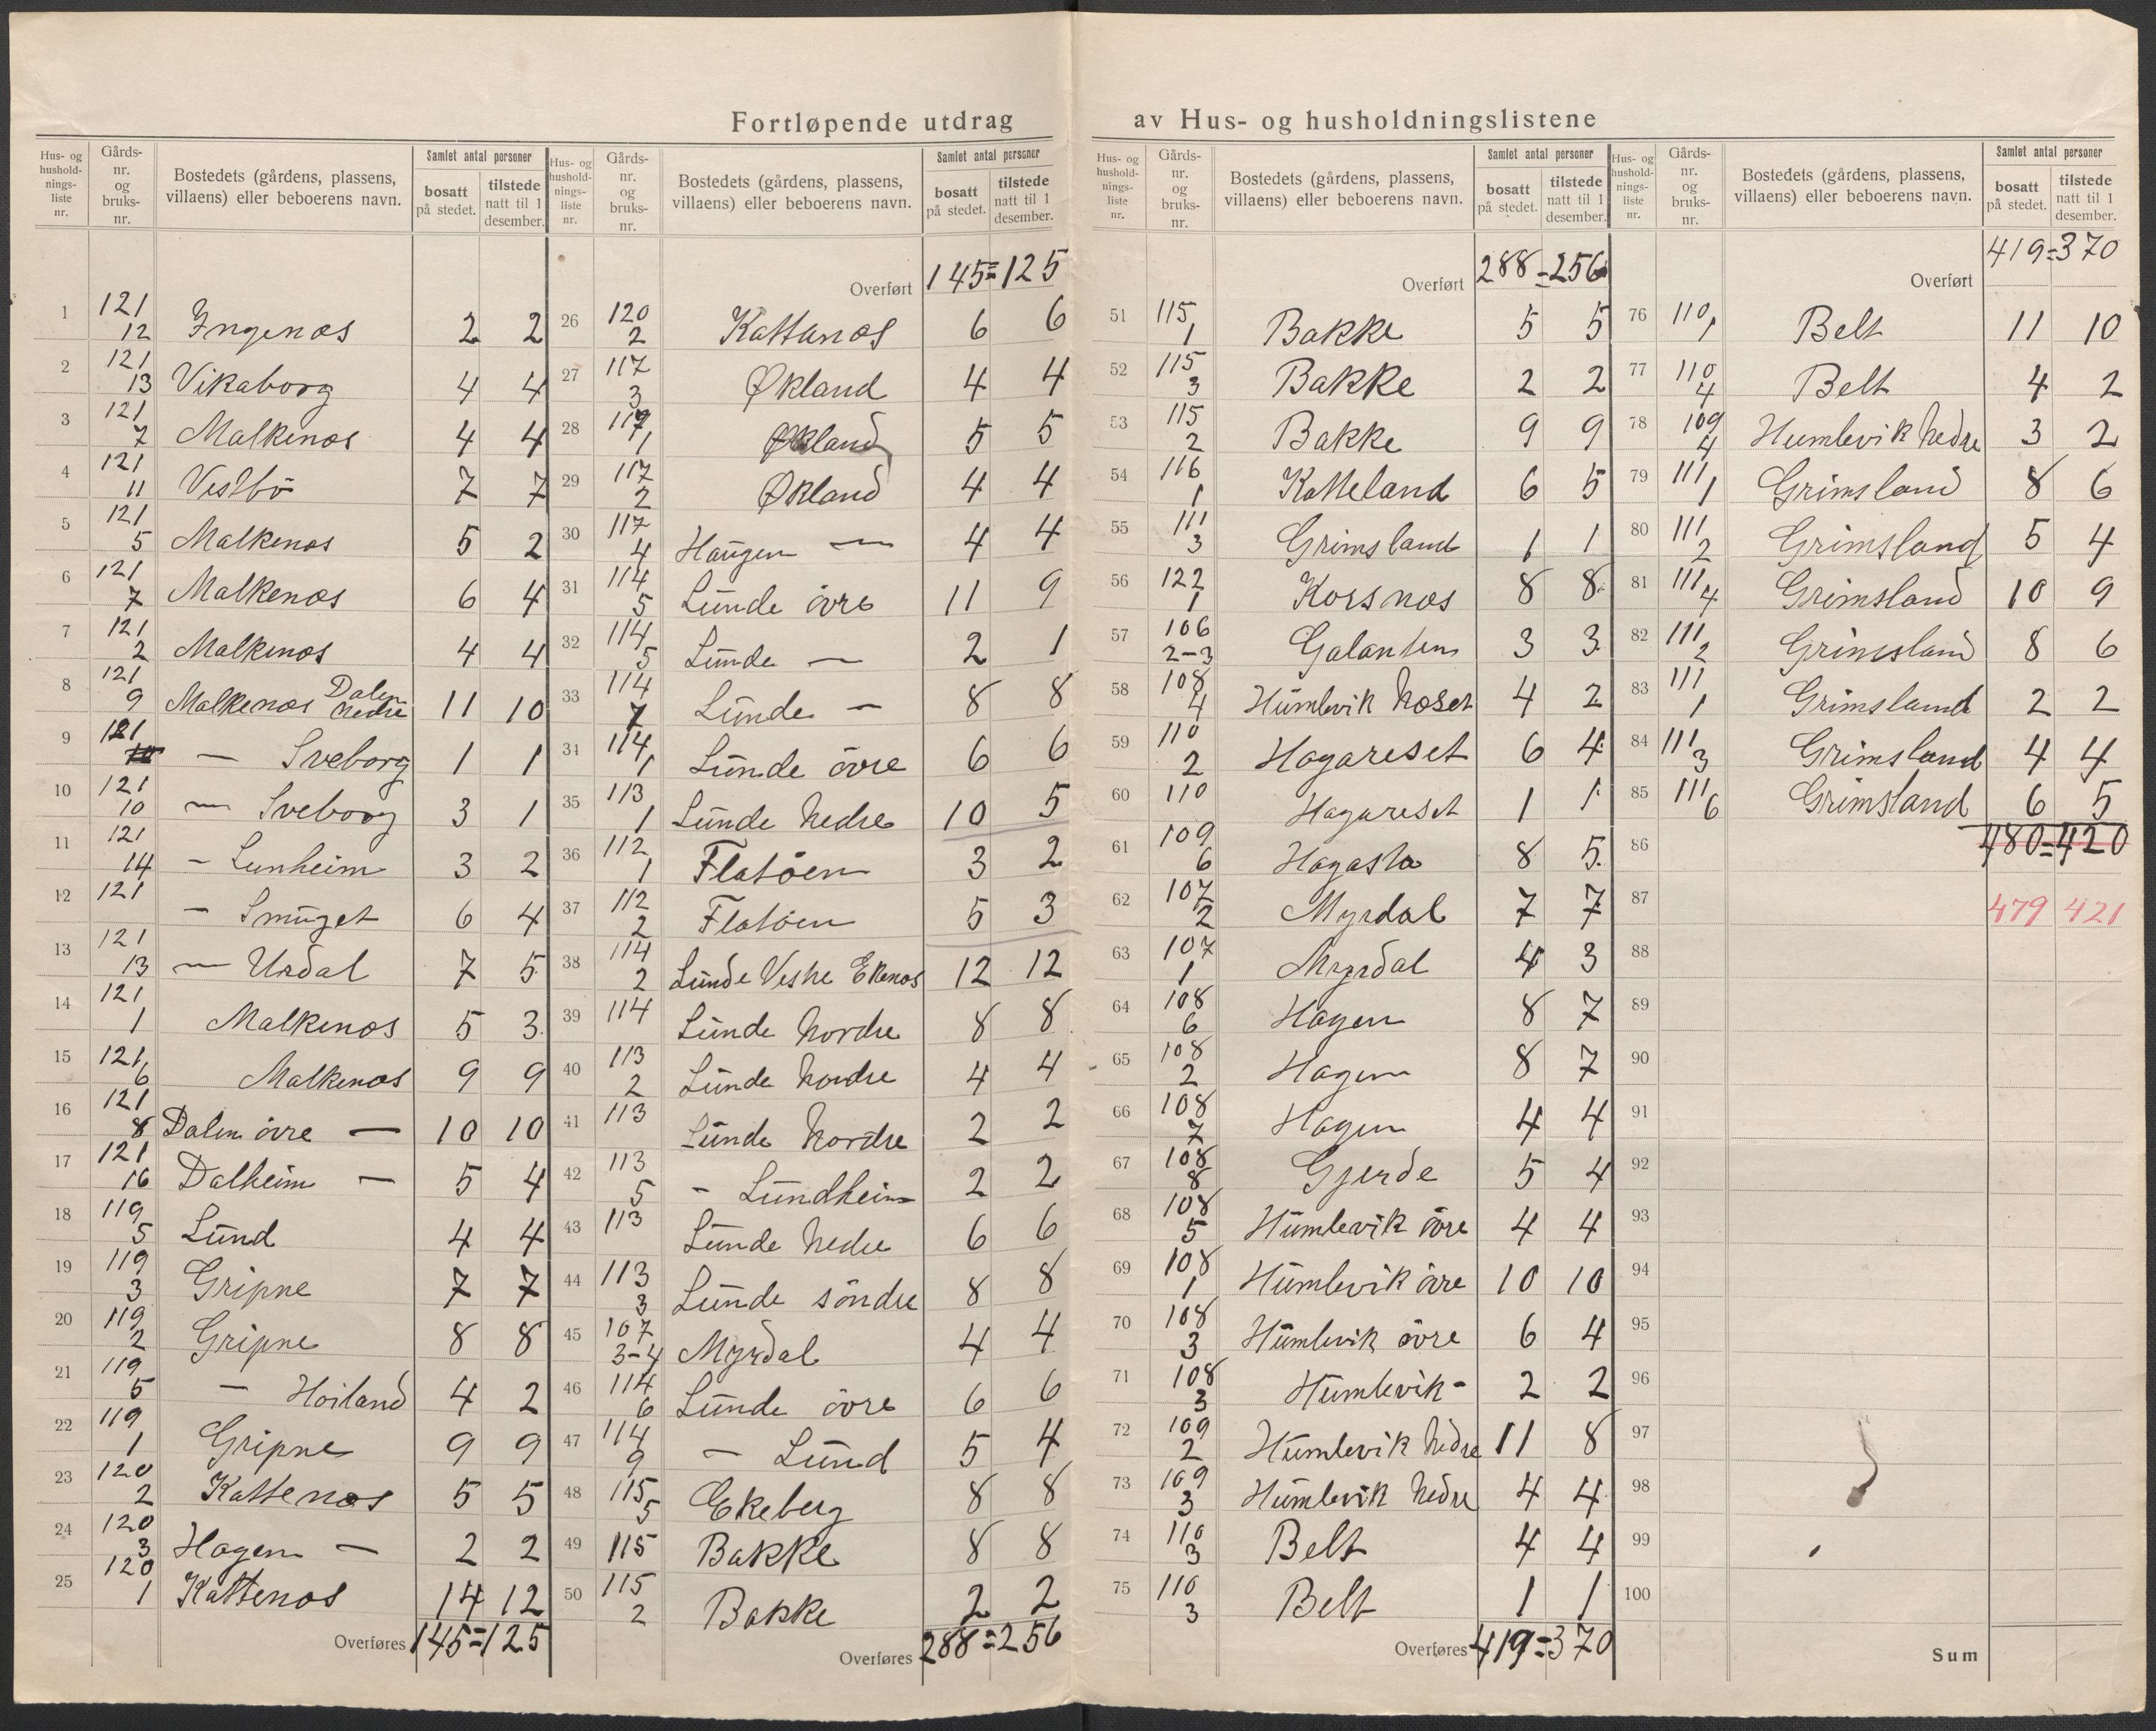 Fortløpende utdrag av Hus- og husholdningslistene
Hus- og hushold-nings-liste nr. | Gårds-nr. og bruks-nr. | Bostedets (gårdens, plassens, villaens) eller beboerens navn. | Samlet antal personer | bosatt på stedet. | tilstede natt til 1 desember.
1 121 12 Ingenæs 2 2
2 121 13 Vikaborg 4 4
3 121 7 Malkenæs 4 4
4 121 11 Vestbö 7 7
5 121 5 Malkenæs 5 2
6 121 7 Malkenæs 6 4
7 121 2 Malkenæs 4 4
8 121 9 Malkenæs Dalen nedre 11 10
9 121 — Sveborg 1 1
10 121 10 — Sveborg 3 1
11 121 14 — Lunheim 3 2
12 121 — Smuget 6 4
13 121 13 — Urdal 7 5
14 121 1 Malkenæs 5 3
15 121 6 Malkenæs 9 9
16 121 8 Dalen övre — 10 10
17 121 16 Dalheim — 5 4
18 119 5 Lund 4 4
19 119 3 Gripne 7 7
20 119 2 Gripne 8 8
21 119 5 — Hoiland 4 2
22 119 1 Gripne 9 9
23 120 2 Kattenæs 5 5
24 120 3 Hagen — 2 2
25 120 1 Kattenæs 14 12
Overføres 145=125
Hus- og hushold-nings-liste nr. | Gårds-nr. og bruks-nr. | Bostedets (gårdens, plassens, villaens) eller beboerens navn. | Samlet antal personer | bosatt på stedet. | tilstede natt til 1 desember.
Overført 145=125
26 120 2 Kattanæs 6 6
27 117 3 Økland 4 4
28 117 1 Økland 5 5
29 117 2 Økland 4 4
30 117 4 Haugen — 4 4
31 114 5 Lunde övre 11 9
32 114 5 Lunde — 2 1
33 114 7 Lunde — 8 8
34 114 1 Lunde övre 6 6
35 113 1 Lunde Nedre 10 5
36 112 1 Flatöen 3 2
37 112 2 Flatöen 5 3
38 114 2 Lunde Vestre Ekenæs 12 12
39 114 Lunde Nordre 8 8
40 113 2 Lunde Nordre 4 4
41 113 Lunde Nordre 2 2
42 113 5 — Lundheim 2 2
43 113 Lunde Nedre 6 6
44 113 3 Lunde söndre 8 8
45 107 3-4 Myrdal 4 4
46 114 6 Lunde övre 6 6
47 114 9 — Lund 5 4
48 115 5 Ekeberg 8 8
49 115 Bakke 8 8
50 115 2 Bakke 2 2
Overføres 288=256
Hus- og hushold-nings-liste nr. | Gårds-nr. og bruks-nr. | Bostedets (gårdens, plassens, villaens) eller beboerens navn. | Samlet antal personer | bosatt på stedet. | tilstede natt til 1 desember.
Overført 288=256
51 115 1 Bakke 5 5
52 115 3 Bakke 2 2
53 115 2 Bakke 9 9
54 116 1 Katteland 6 5
55 111 3 Grimsland 1 1
56 122 1 Korsnæs 8 8
57 106 2-3 Galanten 3 3
58 108 4 Humlevik Næset 4 2
59 110 2 Hagareset 6 4
60 110 Hagareset 1 1
61 109 6 Hagasta 8 5
62 107 2 Myrdal 7 7
63 107 1 Myrdal 4 3
64 108 6 Hagen 8 7
65 108 2 Hagen 8 7
66 108 7 Hagen 4 4
67 108 8 Gjerde 5 4
68 108 5 Humlevik övre 4 4
69 108 1 Humlevik övre 10 10
70 108 3 Humlevik övre 6 4
71 108 3 Humlevik - 2 2
72 109 2 Humlevik Nedre 11 8
73 109 3 Humlevik Nedre 4 4
74 110 3 Belt 4 4
75 110 3 Belt 1 1
Overføres 419=370
Hus- og hushold-nings-liste nr. | Gårds-nr. og bruks-nr. | Bostedets (gårdens, plassens, villaens) eller beboerens navn. | Samlet antal personer | bosatt på stedet. | tilstede natt til 1 desember.
Overført 419=370
76 110 1 Belt 11 10
77 110 4 Belt 4 2
78 109 4 Humlevik Nedre 3 2
79 111 1 Grimsland 8 6
80 111 2 Grimsland 5 4
81 111 4 Grimsland 10 9
82 111 2 Grimsland 8 6
83 111 1 Grimsland 2 2
84 111 3 Grimsland 4 4
85 111 6 Grimsland 6 5
86 480=420
87 479 421
88
89
90
91
92
93
94
95
96
97
98
99
100
Sum